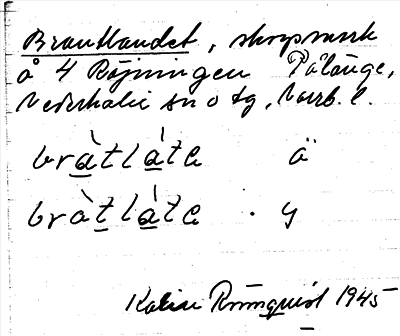 Brantlandet, skogsmark
å 4 Röjningen Pålänge,
Nederkalix sn o tg, Norrb. l.
bràtláta ä
bràtláta . y
Karin Rönnquist 1945